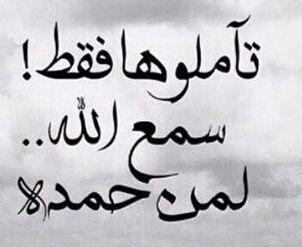 تآملوها فقط!
سمع الله..
لمن حمده